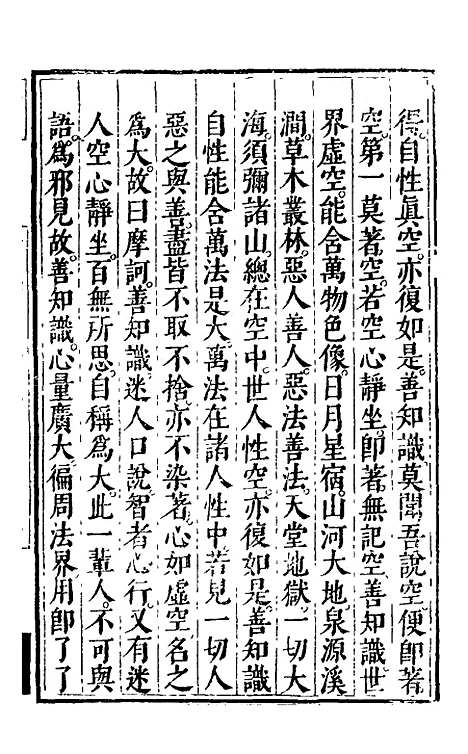 得。自性真空。亦復如是。善知識。莫聞吾說空。便卽著
空。第一莫著空。若空心靜坐。卽著無記空。善知識。世
界虛空。能含萬物色像。日月星宿。山河大地。泉源溪
澗。草木叢林。惡人善人。惡法善法。天堂地獄。一切大
海。須彌諸山。總在空中。世人性空。亦復如是。善知識
自性能含萬法是大。萬法在諸人性中。若見一切人
惡之與善。盡皆不取不捨。亦不染著。心如虛空。名之
爲大。故曰摩訶。善知識。迷人口說。智者心行。又有迷
人。空心靜坐。百無所思。自稱爲大。此一輩人。不可與
語。爲邪見故。善知識。心量廣大。徧周法界。用卽了了